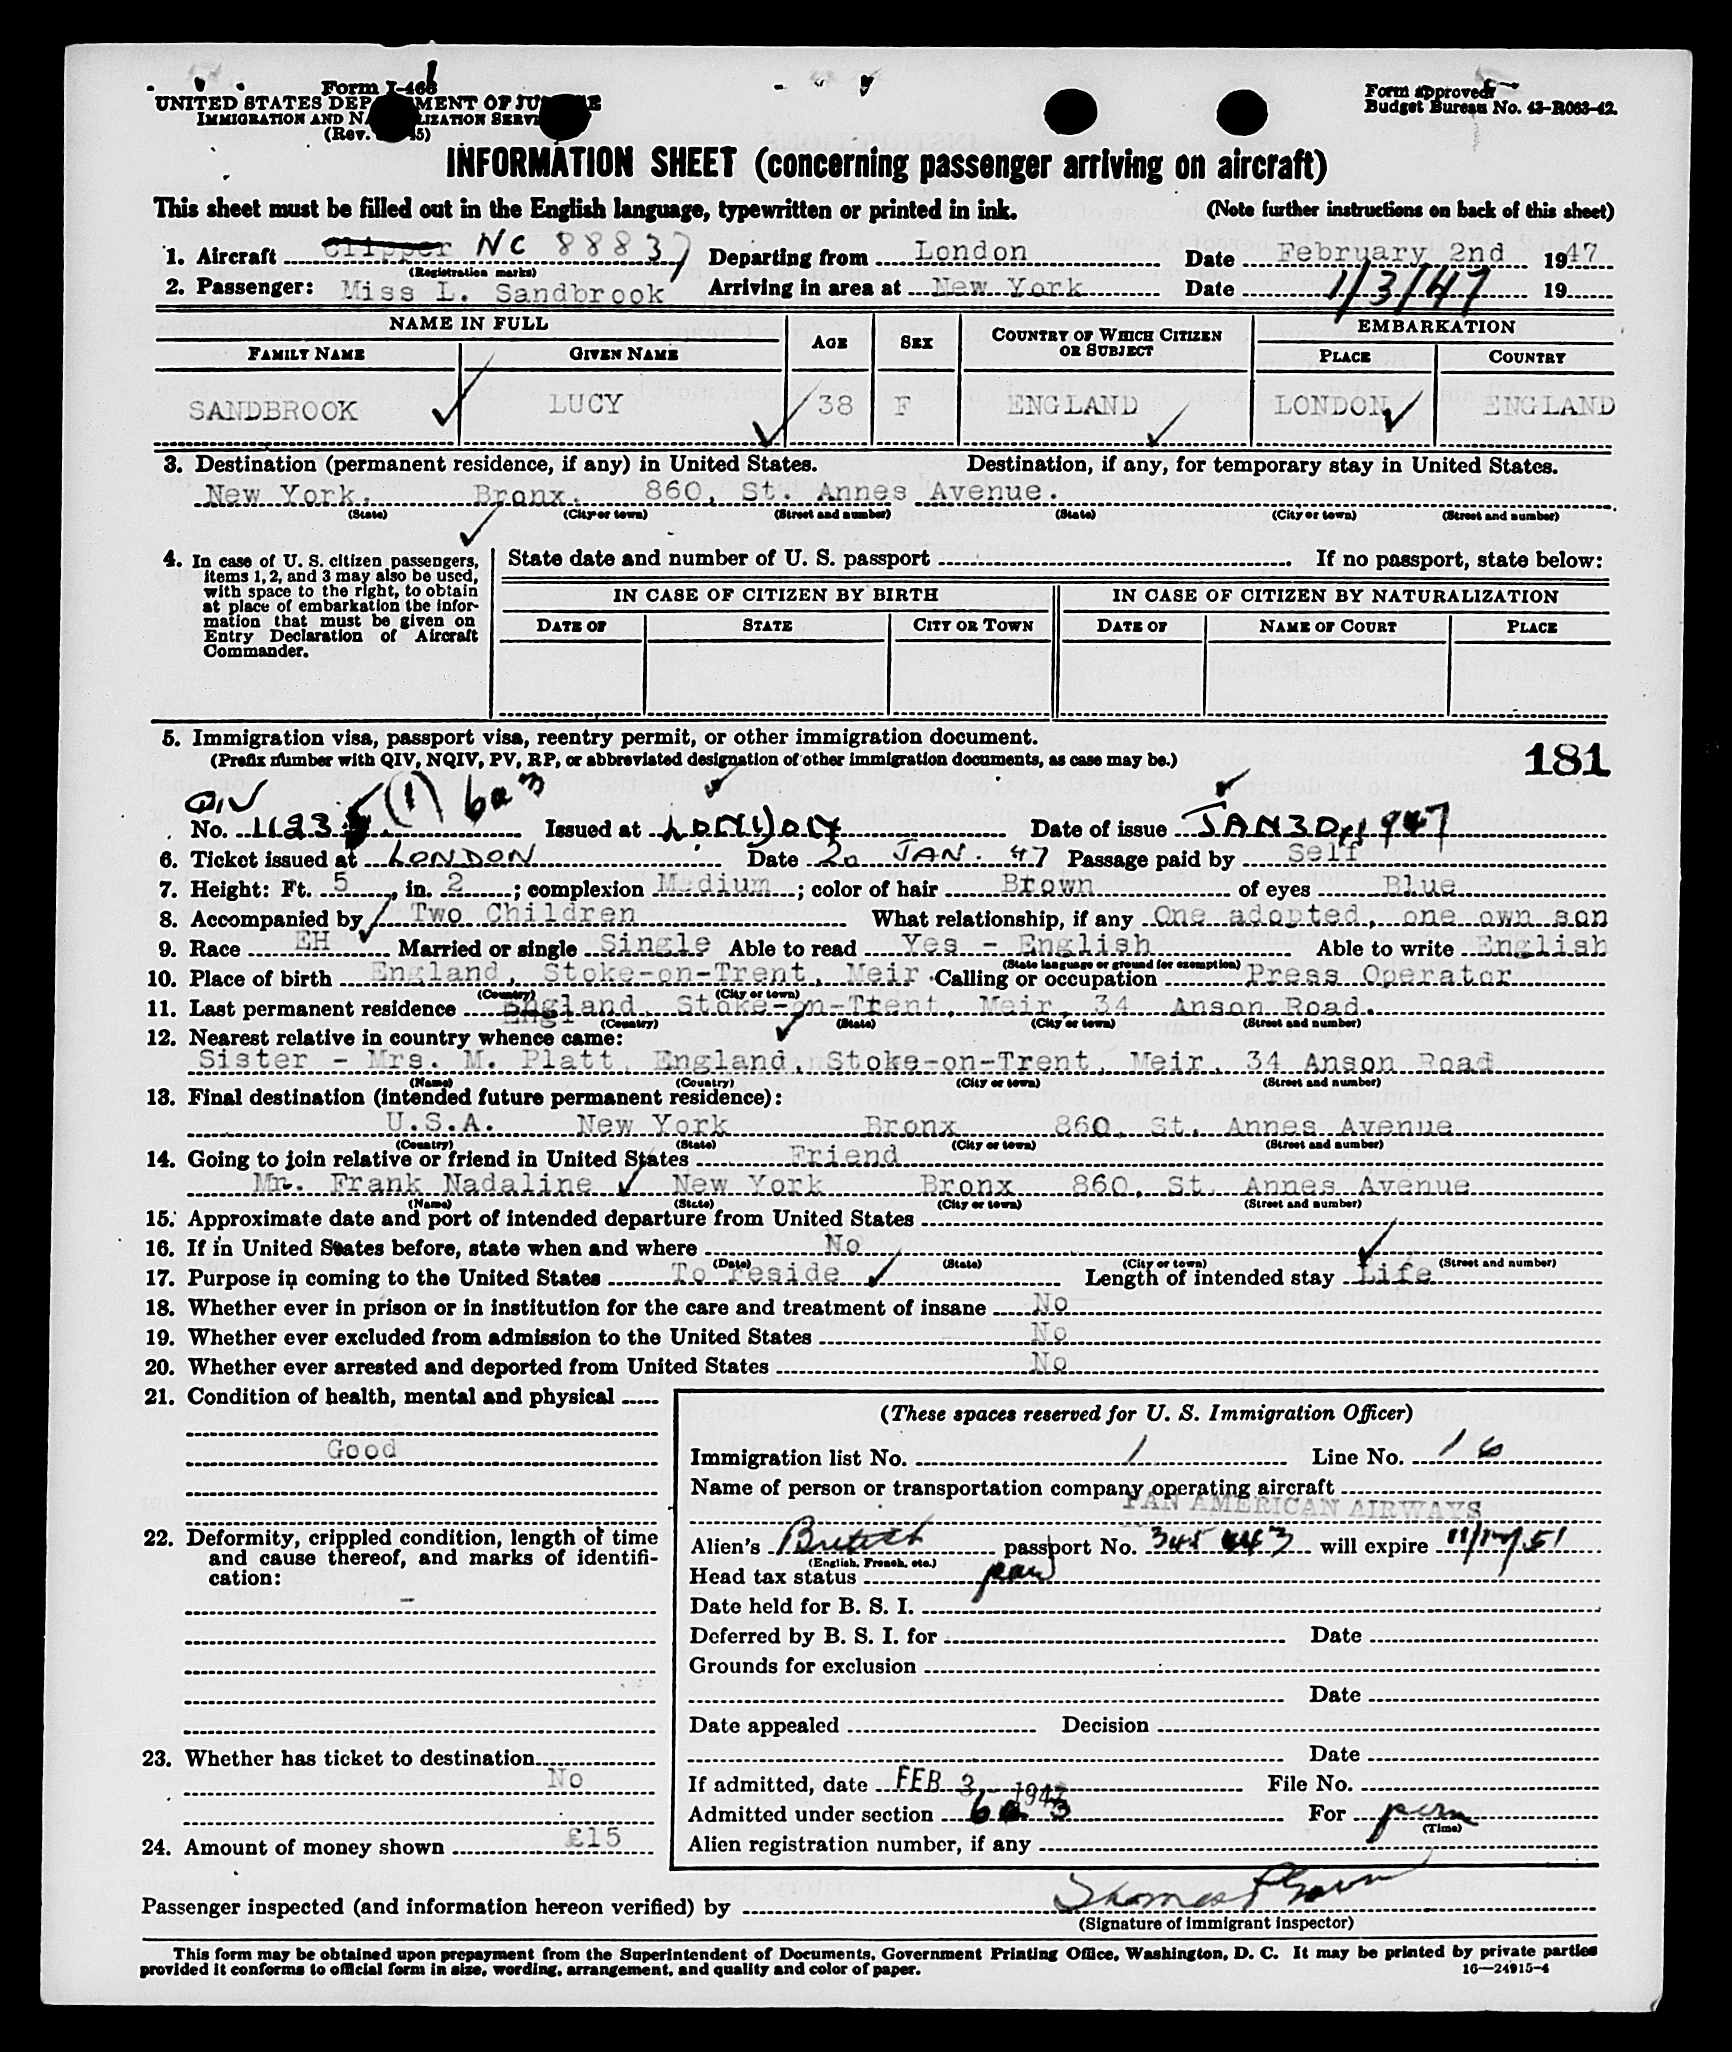 Form I-466
UNITED STATES DEPARTMENT OF JUSTICE
IMMIGRATION AND NATURALIZATION SERVICE
(Rev. 45)
Form approved.
Budget Bureau No. 43-R063-42.
INFORMATION SHEET (concerning passenger arriving on aircraft)
This sheet must be filled out in the English language, typewritten or printed in ink. (Note further instructions on back of this sheet)
1. Aircraft Clipper NC 88837 Departing from London Date February 2nd 1947
(Registration marks)
2. Passenger: Miss L. Sandbrook Arriving in area at New York Date 1/3/47 19
NAME IN FULL AGE SEX COUNTRY OF WHICH CITIZEN OR SUBJECT EMBARKATION
FAMILY NAME GIVEN NAME PLACE COUNTRY
SANDBROOK LUCY 38 F ENGLAND LONDON ENGLAND
3. Destination (permanent residence, if any) in United States. Destination, if any, for temporary stay in United States.
New York. Bronx. 860, St. Annes Avenue.
(State) (City or town) (Street and number) (State) (City or town) (Street and number)
4. In case of U. S. citizen passengers,
items 1, 2, and 3 may also be used,
with space to the right, to obtain
at place of embarkation the infor-
mation that must be given on
Entry Declaration of Aircraft
Commander.
State date and number of U. S. passport If no passport, state below:
IN CASE OF CITIZEN BY BIRTH IN CASE OF CITIZEN BY NATURALIZATION
DATE OF STATE CITY OR TOWN DATE OF NAME OF COURT PLACE
5. Immigration visa, passport visa, reentry permit, or other immigration document.
(Prefix number with QIV, NQIV, PV, RP, or abbreviated designation of other immigration documents, as case may be.)
181
QIV (1) 6a3
No. 1123 Issued at LONDON Date of issue JAN 30, 1947
6. Ticket issued at LONDON Date 20 JAN. 47 Passage paid by Self
7. Height: Ft. 5, in. 2; complexion Medium; color of hair Brown of eyes Blue
8. Accompanied by Two Children What relationship, if any One adopted, one own son
9. Race EH Married or single Single Able to read Yes - English Able to write English
(State language or ground for exemption)
10. Place of birth England, Stoke-on-Trent, Meir Calling or occupation Press Operator
(Country) (City or town)
11. Last permanent residence England, Stoke-on-Trent, Meir, 34 Anson Road.
(Country) (State) (City or town) (Street and number)
12. Nearest relative in country whence came:
Sister - Mrs. M. Platt, England, Stoke-on-Trent, Meir, 34 Anson Road
(Name) (Country) (City or town) (Street and number)
13. Final destination (intended future permanent residence):
U.S.A. New York Bronx 860, St. Annes Avenue
(Country) (State) (City or town) (Street and number)
14. Going to join relative or friend in United States Friend
Mr. Frank Nadaline New York Bronx 860, St. Annes Avenue
(Name) (State) (City or town) (Street and number)
15. Approximate date and port of intended departure from United States
16. If in United States before, state when and where No
(Date) (State) (City or town) (Street and number)
17. Purpose in coming to the United States To reside Length of intended stay Life
18. Whether ever in prison or in institution for the care and treatment of insane No
19. Whether ever excluded from admission to the United States No
20. Whether ever arrested and deported from United States No
21. Condition of health, mental and physical
Good
22. Deformity, crippled condition, length of time
and cause thereof, and marks of identifi-
cation:
-
23. Whether has ticket to destination
No
24. Amount of money shown £15
(These spaces reserved for U. S. Immigration Officer)
Immigration list No. 1 Line No. 16
Name of person or transportation company operating aircraft
PAN AMERICAN AIRWAYS
Alien's British passport No. 345 443 will expire 11/17/51
(English, French, etc.)
Head tax status paid
Date held for B. S. I.
Deferred by B. S. I. for Date
Grounds for exclusion
Date
Date appealed Decision
Date
If admitted, date FEB 3 1947 File No.
Admitted under section 6a3 For perm
(Time)
Alien registration number, if any
Passenger inspected (and information hereon verified) by Thomas
(Signature of immigrant inspector)
This form may be obtained upon prepayment from the Superintendent of Documents, Government Printing Office, Washington, D. C. It may be printed by private parties
provided it conforms to official form in size, wording, arrangement, and quality and color of paper. 16—24915-4